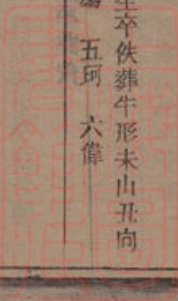 生卒佚葬牛形未山丑向
五珂　六偉